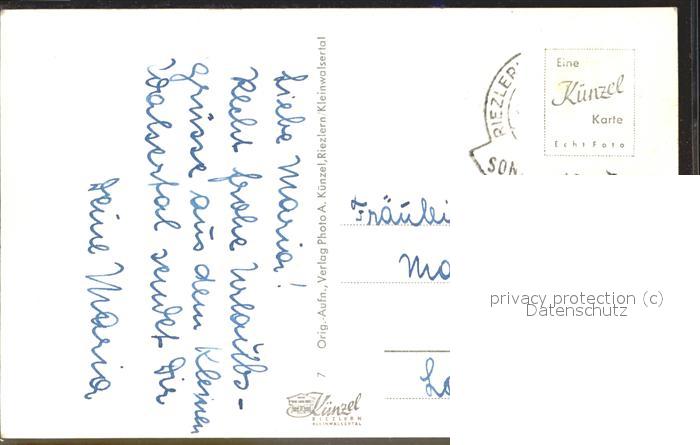 Liebe Maria!
Recht frohe Urlaubs-
grüsse aus dem Kleinen
Walsertal sendet Dir
Deine Maria
7 Orig.-Aufn., Verlag Photo A. Künzel, Riezlern/Kleinwalsertal
Künzel
RIEZLERN
KLEINWALSERTAL
RIEZLER
SON
Eine
Künzel
Karte
Echt Foto
Fräulei
Ma
privacy protection (c)
Datenschutz